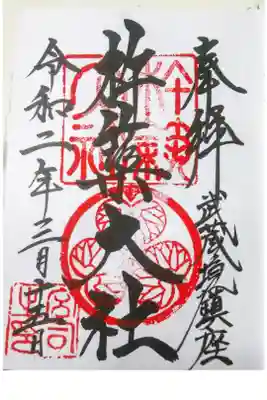 奉拝
武蔵境鎮座
杵築大社
令和二年三月十五日